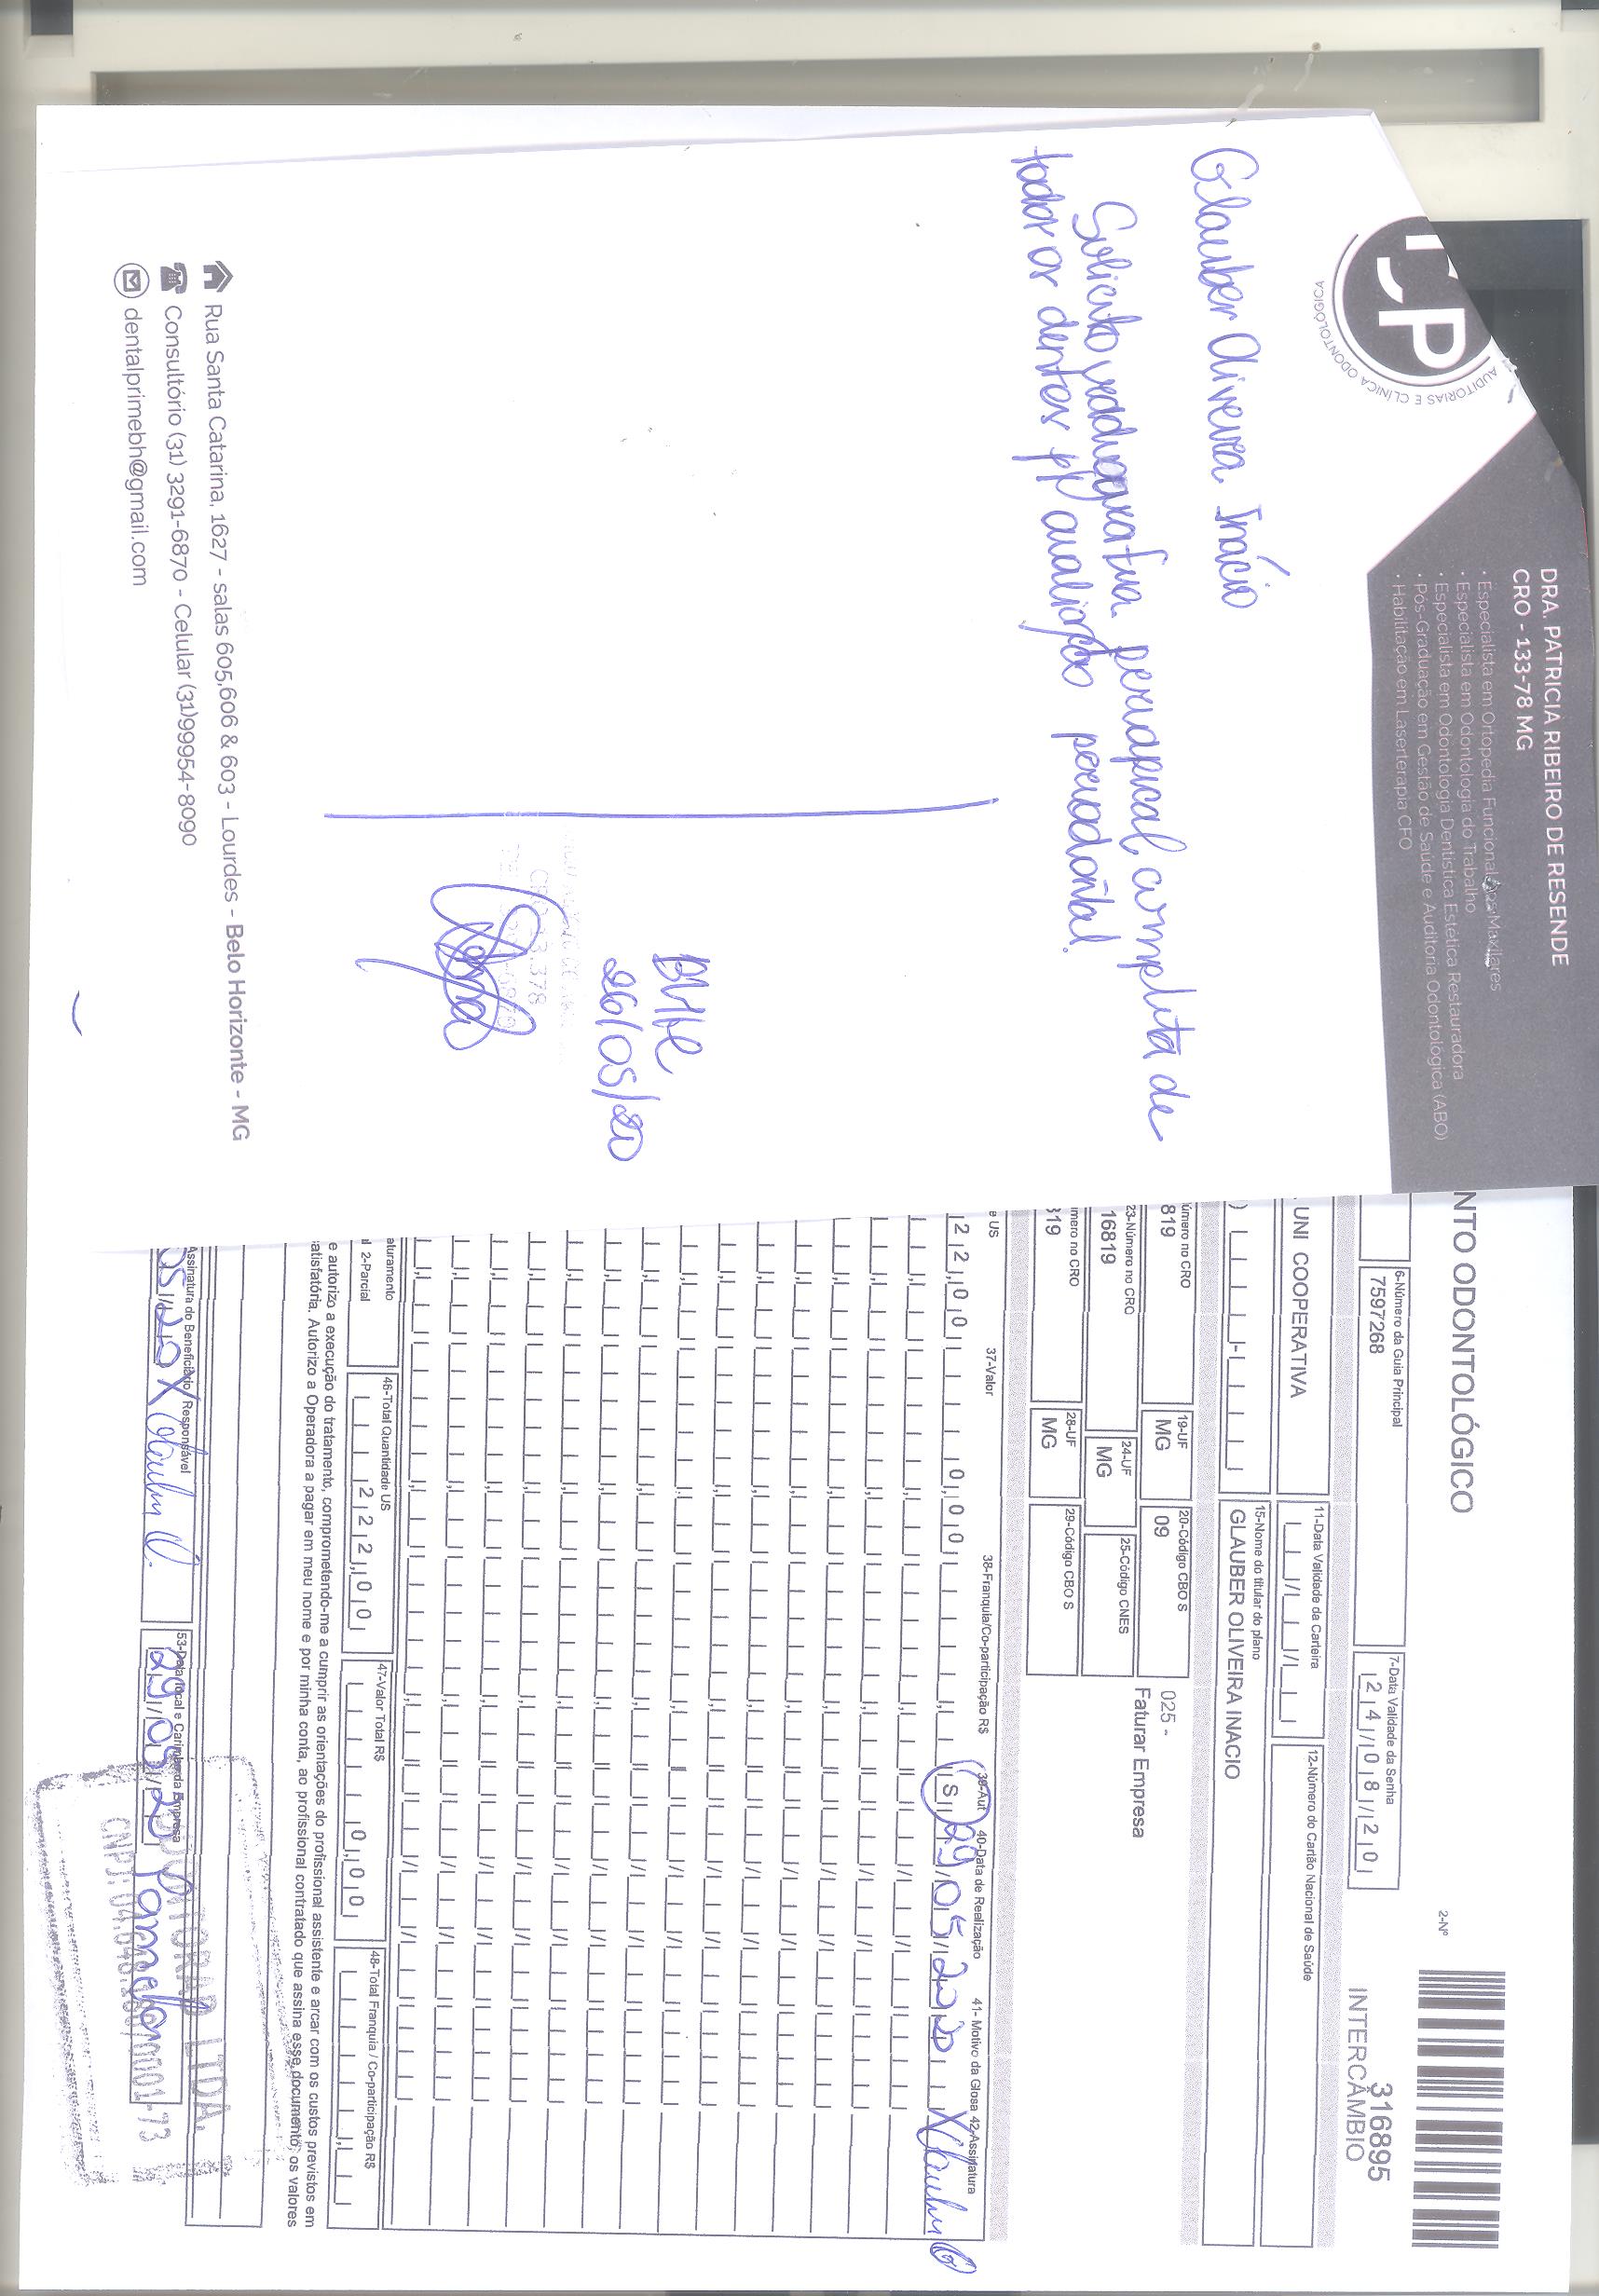 DRA. PATRICIA RIBEIRO DE RESENDE
CRO - 133-78 MG
• Especialista em Ortopedia Funcional dos Maxilares
• Especialista em Odontologia do Trabalho
• Especialista em Odontologia Dentística Estética Restauradora
• Pós-Graduação em Gestão de Saúde e Auditoria Odontológica (ABO)
• Habilitação em Laserterapia CFO
AUDITORIAS E CLÍNICA ODONTOLÓGICA
Glauber Oliveira Inácio
Solicito radiografia periapical completa de
todos os dentes p/ avaliação periodontal.
26/05/20
Rua Santa Catarina, 1627 - salas 605,606 & 603 - Lourdes - Belo Horizonte - MG
Consultório (31) 3291-6870 - Celular (31)99954-8090
dentalprimebh@gmail.com
NTO ODONTOLÓGICO
2-Nº
316895
INTERCÂMBIO
6-Número da Guia Principal
7597268
7-Data Validade da Senha
24/08/20
UNI COOPERATIVA
11-Data Validade da Carteira
12-Número do Cartão Nacional de Saúde
15-Nome do titular do plano
GLAUBER OLIVEIRA INACIO
úmero no CRO
819
19-UF
MG
20-Código CBO S
09
025 -
Faturar Empresa
23-Número no CRO
16819
24-UF
MG
25-Código CNES
úmero no CRO
319
28-UF
MG
29-Código CBO S
e US
37-Valor
38-Franquia/Co-participação R$
39-Aut
40-Data de Realização
41- Motivo da Glosa
42-Assinatura
22,00
0,00
S
29/05/2020
aturamento
al 2-Parcial
46-Total Quantidade US
222,00
47-Valor Total R$
0,00
48-Total Franquia / Co-participação R$
e autorizo a execução do tratamento, comprometendo-me a cumprir as orientações do profissional assistente e arcar com os custos previstos em
satisfatória. Autorizo a Operadora a pagar em meu nome e por minha conta, ao profissional contratado que assina esse documento, os valores
Assinatura do Beneficiário Responsável
05/20 X
53-Data, local e Carimbo da Empresa
29/05/20
LTDA.